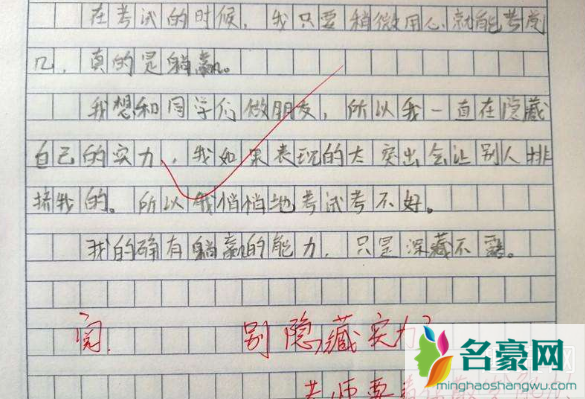 在考试的时候，我只要稍微用心就能考第
几，真的是躺赢。
我想和同学们做朋友，所以我一直在隐藏
自己的实力，我如果表现的太突出会让别人排
挤我的。所以我悄悄地考试考不好。
我的确有躺赢的能力，只是深藏不露。
阅.
别隐藏实力
老师要
名豪网
minghaoshangwu.com